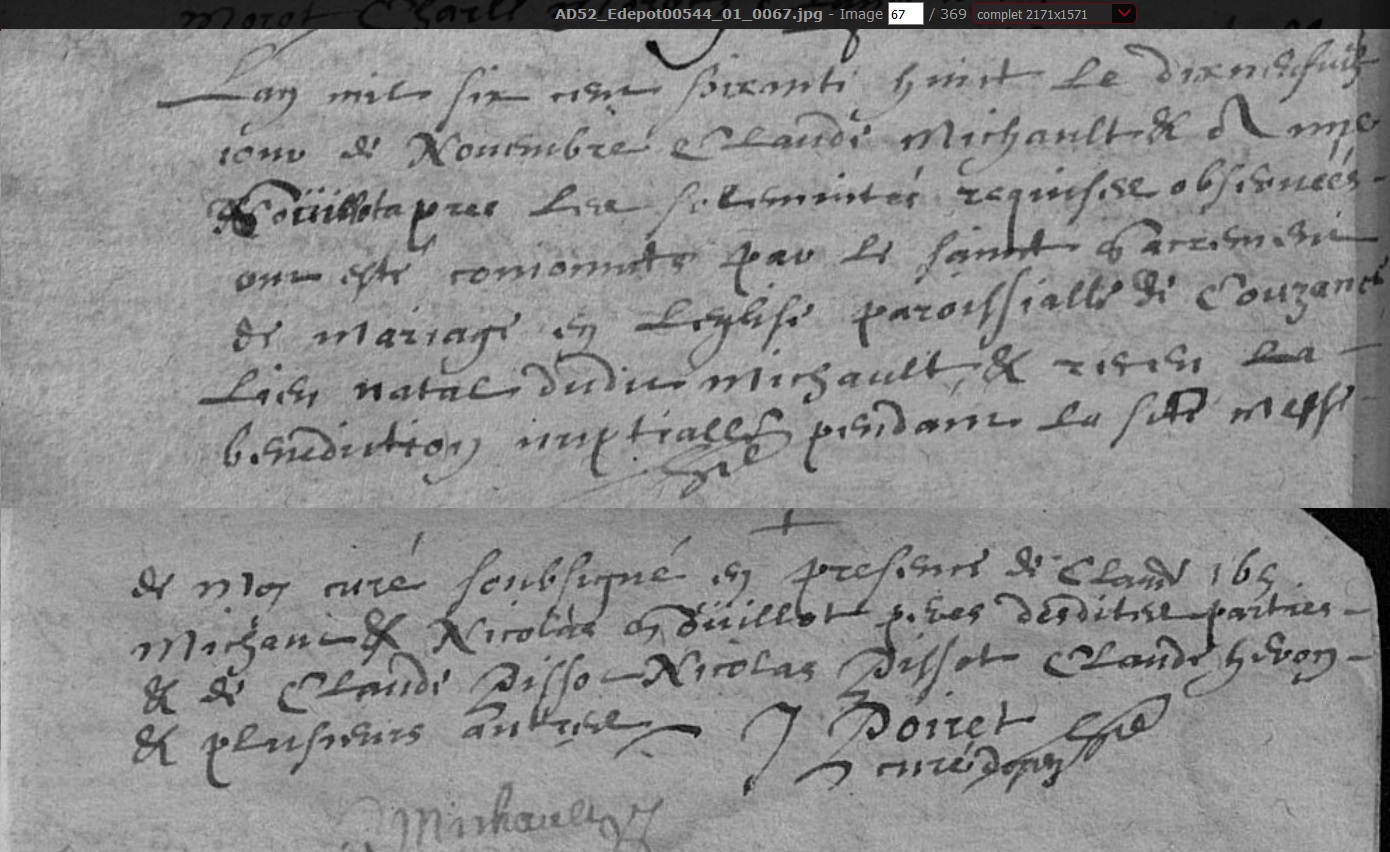 AD52_Edepot00544_01_0067.jpg - Image 67 / 369 complet 2171x1571
Lan mil six cent soixante huict le dixneufuie
iour de Nouembre Claude Michault & Anne
apres les solemnités requises obseruées
ont esté conioincts par le sainct Sacrement
de mariage en Leglise paroissialle de Couzance
Lieu natal dudit Michault & receu La
benediction nuptialle pendant La ste Messe
de Moy curé soubsigné en presence de Claude
Michault & Nicolas Goüillot peres desdites parties
& de Claude Pissot Nicolas Pissot Claude
& plusieurs autres J Poiret
curé
Michault